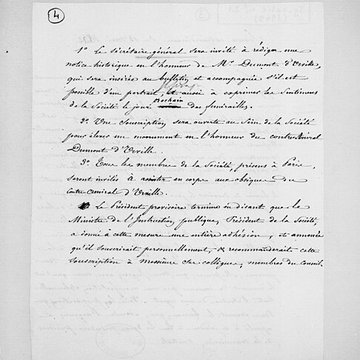 4
1° Le Secrétaire général sera invité à rédiger une
notice historique en l'honneur de Mr. Dumont d'Urville,
qui sera insérée au bulletin et accompagnée s'il est
possible d'un portrait, et aussi à exprimer les sentimens
de la Société le jour prochain des funérailles.
2° Une Souscription sera ouverte au Sein de la Société
pour élever un monument en l'honneur du contre-Amiral
Dumont d'Urville.
3° Tous les membres de la Société, présens à Paris,
seront invités à assister en corps aux obsèques du
Contre-amiral d'Urville.
Le Président provisoire termine en disant que le
Ministre de l'Instruction publique, Président de la Société,
a donné à cette mesure une entière adhésion, et annoncé
qu'il souscrirait personnellement, & recommanderait cette
souscription à messieurs ses collègues, membres du conseil.